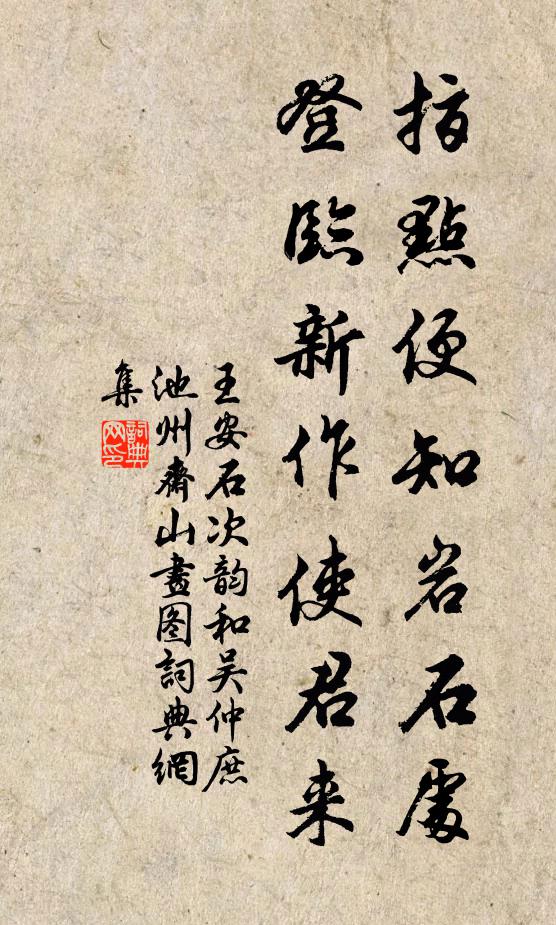 指點便知岩石處
登臨新作使君来
王安石次韵和吴仲庶
池州齊山畫图詞典網
集
詞典网印